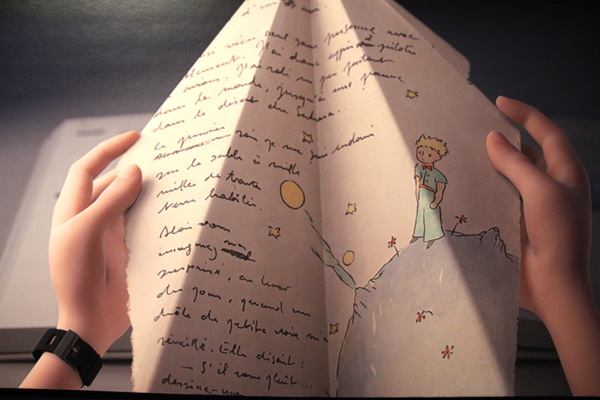 d'un
vécu seul sans personne avec
J'ai donc appris à piloter
avions. J'ai volé un peu partout
dans le monde, jusqu'à une panne
dans le désert du Sahara.
Le premier soir je me suis endormi
sur le sable à mille
mille de toute
terre habitée.
Alors vous
imaginez ma
surprise, au lever
du jour, quand une
drôle de petite voix m'a
réveillé. Elle disait :
— S'il vous plaît...
dessine-moi